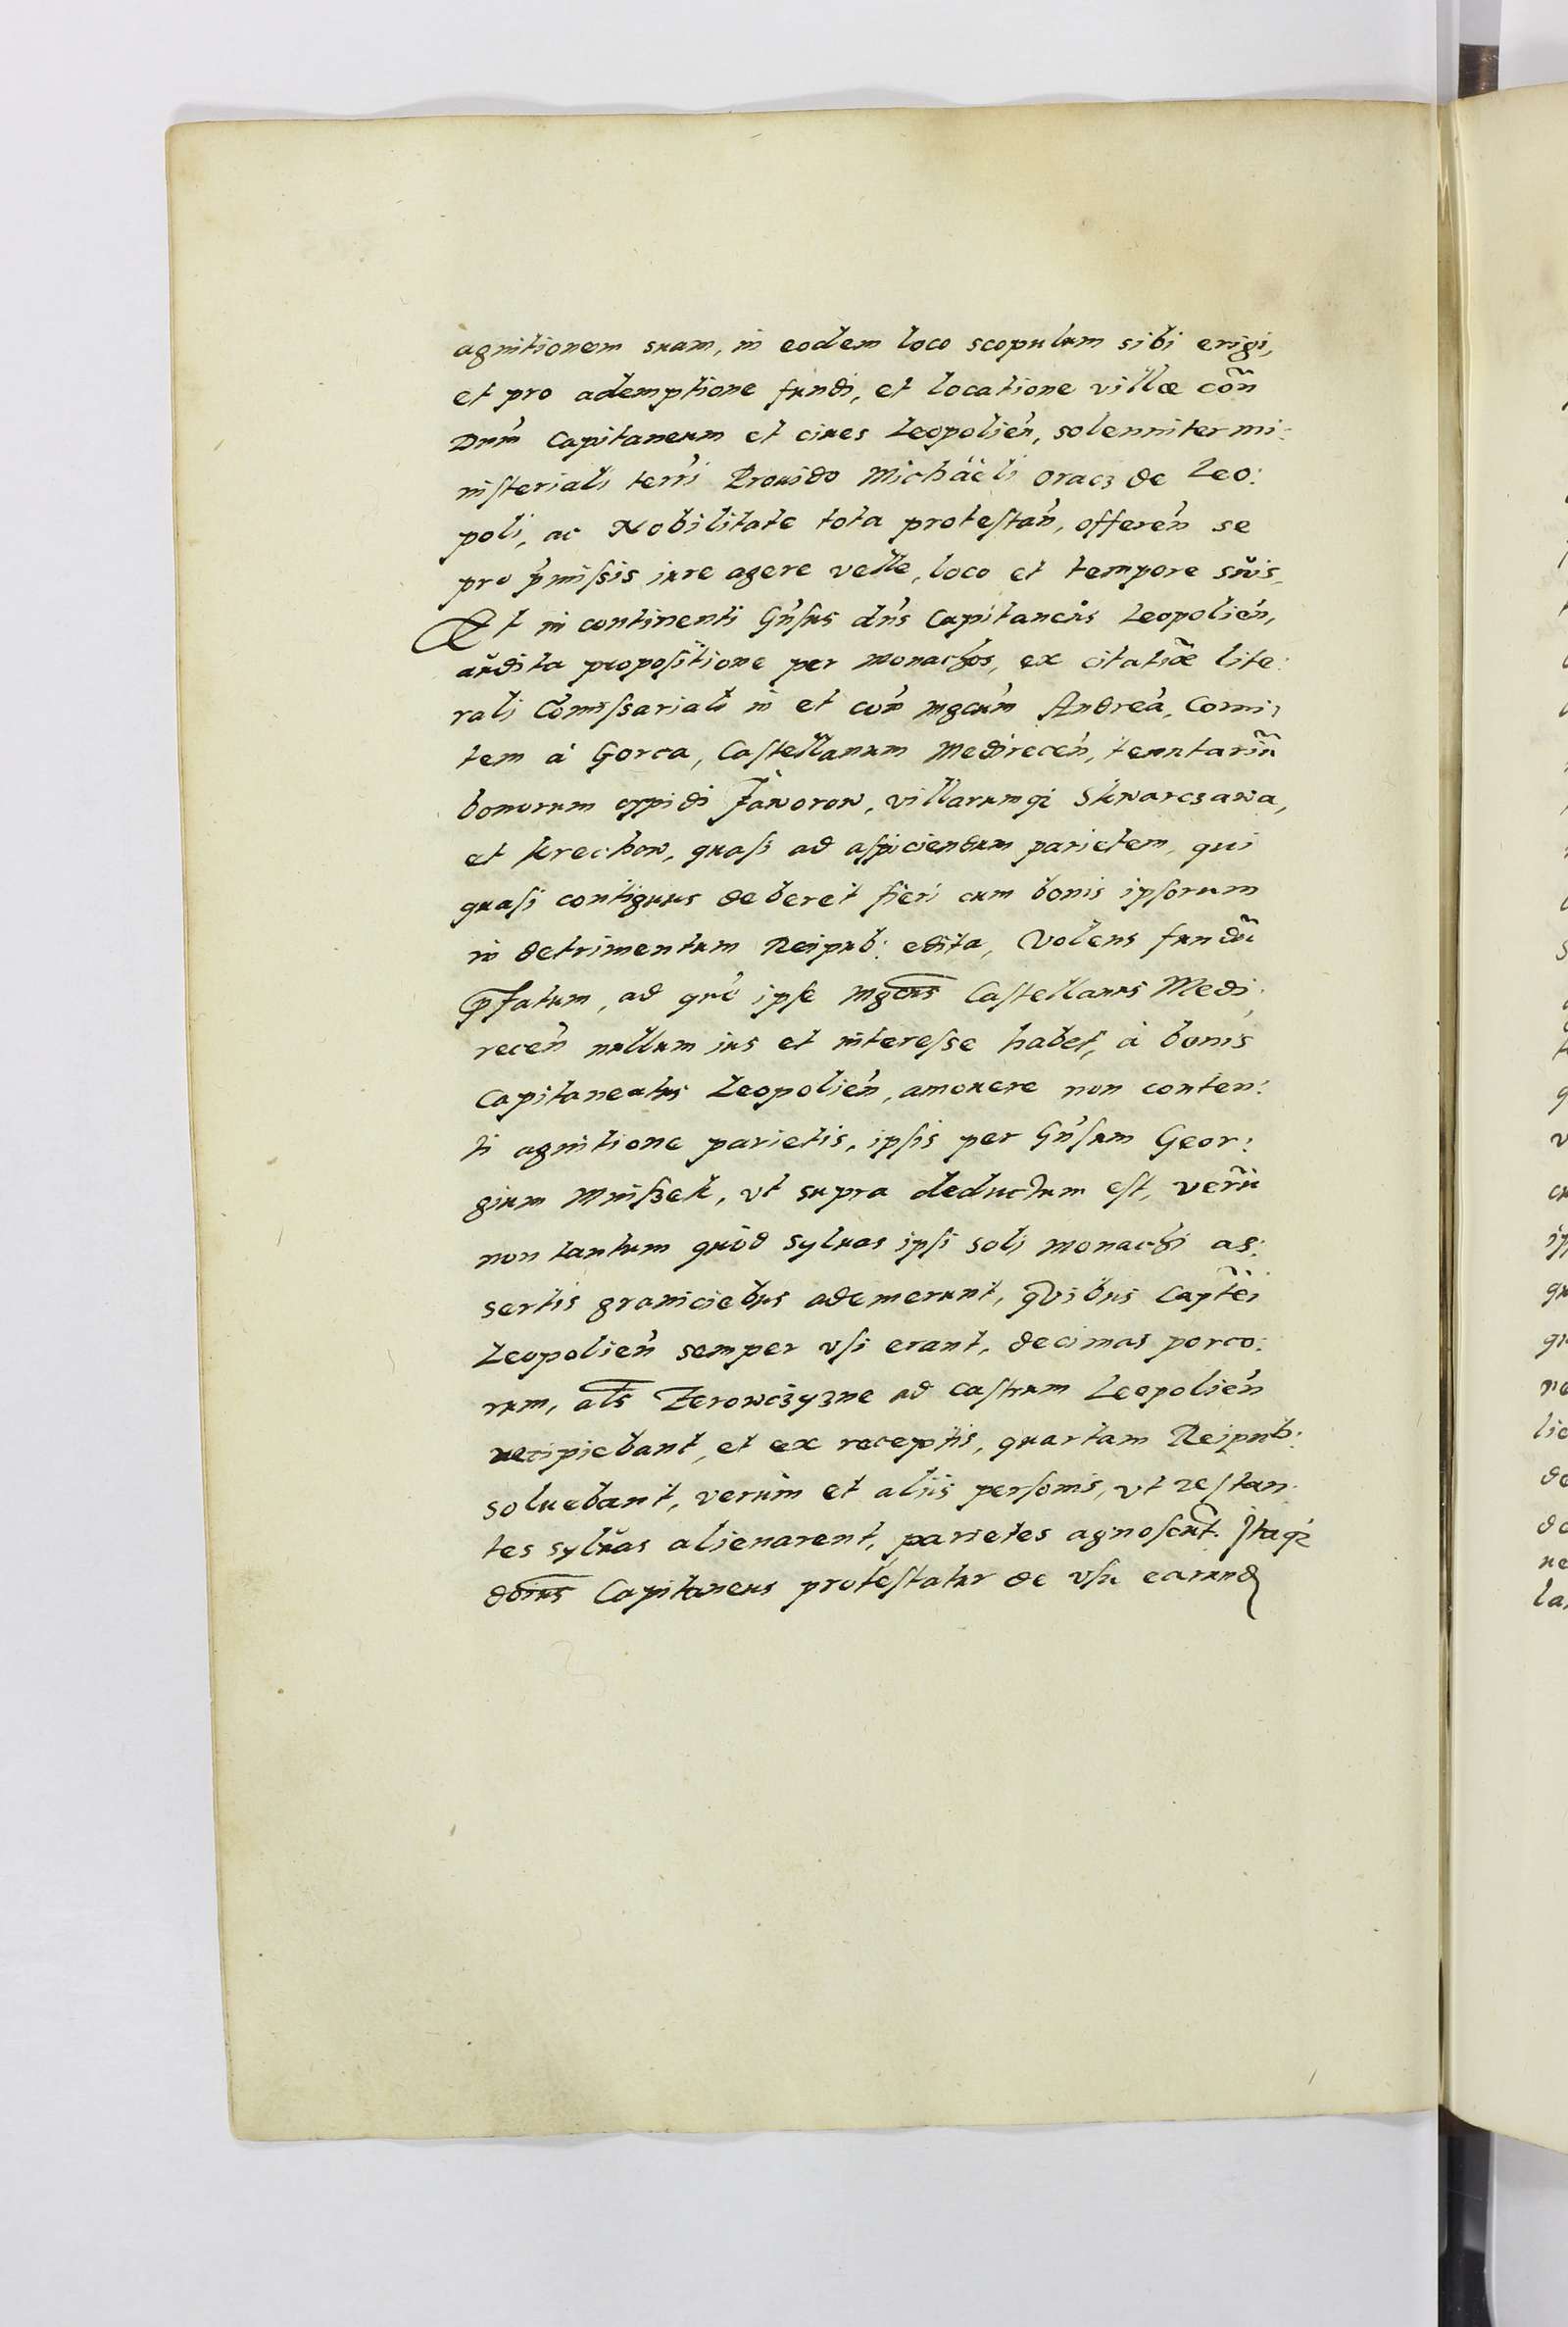 agnitionem suam, in eodem loco scopulum sibi erigi,
et pro ademptione fundi, et locatione villæ cõn
Dnm̃ Capitaneum et ciues Leopolień, solenniter mi:
niſteriali terr̃i Prouido Michäeli Oracz de Leo:
poli, ac Nobilitate tota proteſtań, offereń se
pro p̃miſsis iure agere velle, loco et tempore suis.
Et in continenti Gñſus dñs Capitaneus Leopolień,
audita propoſitione per monachos, ex citatiõe lite:
rali Com̃iſsariali in et coñ mgcum̃ Andreã, Comi:
tem à Gorca, Caſtellanum Medireceń, tenutariũ
bonorum oppidi Jaworow, villarumqꝫ Skwarczawa,
et Krechow, quaſi ad aſpiciendum parietem, qui
quaſi contiguus deberet fieri cum bonis ipſorum
in detrimentum Reipub: edita, Volens fundũ
p̃fatum, ad quẽ ipſe mgcus Caſtellanus Medi:
receń nullum ius et intereſse habet, à bonis
Capitaneatus Leopolień, amouere non conten:
ti agnitione parietis, ipſis per Gñſum Geor:
gium Mniſzek, vt supra deductum eſt, verũ
non tantum quòd syluas ipſi soli monachi as:
sertis graniciebus ademerunt, quibus Captẽi
Leopolień semper vſi erant, decimas porco:
rum, als Zerowczyzne ad caſtrum Leopolień
recipiebant, et ex receptis, quartam Reipub:
soluebant, verùm et aliis perſonis, vt reſtan:
tes syluas alienarent, parietes agnoſcũt. Itaqꝫ
dõnus Capitaneus proteſtatur de vſu earund